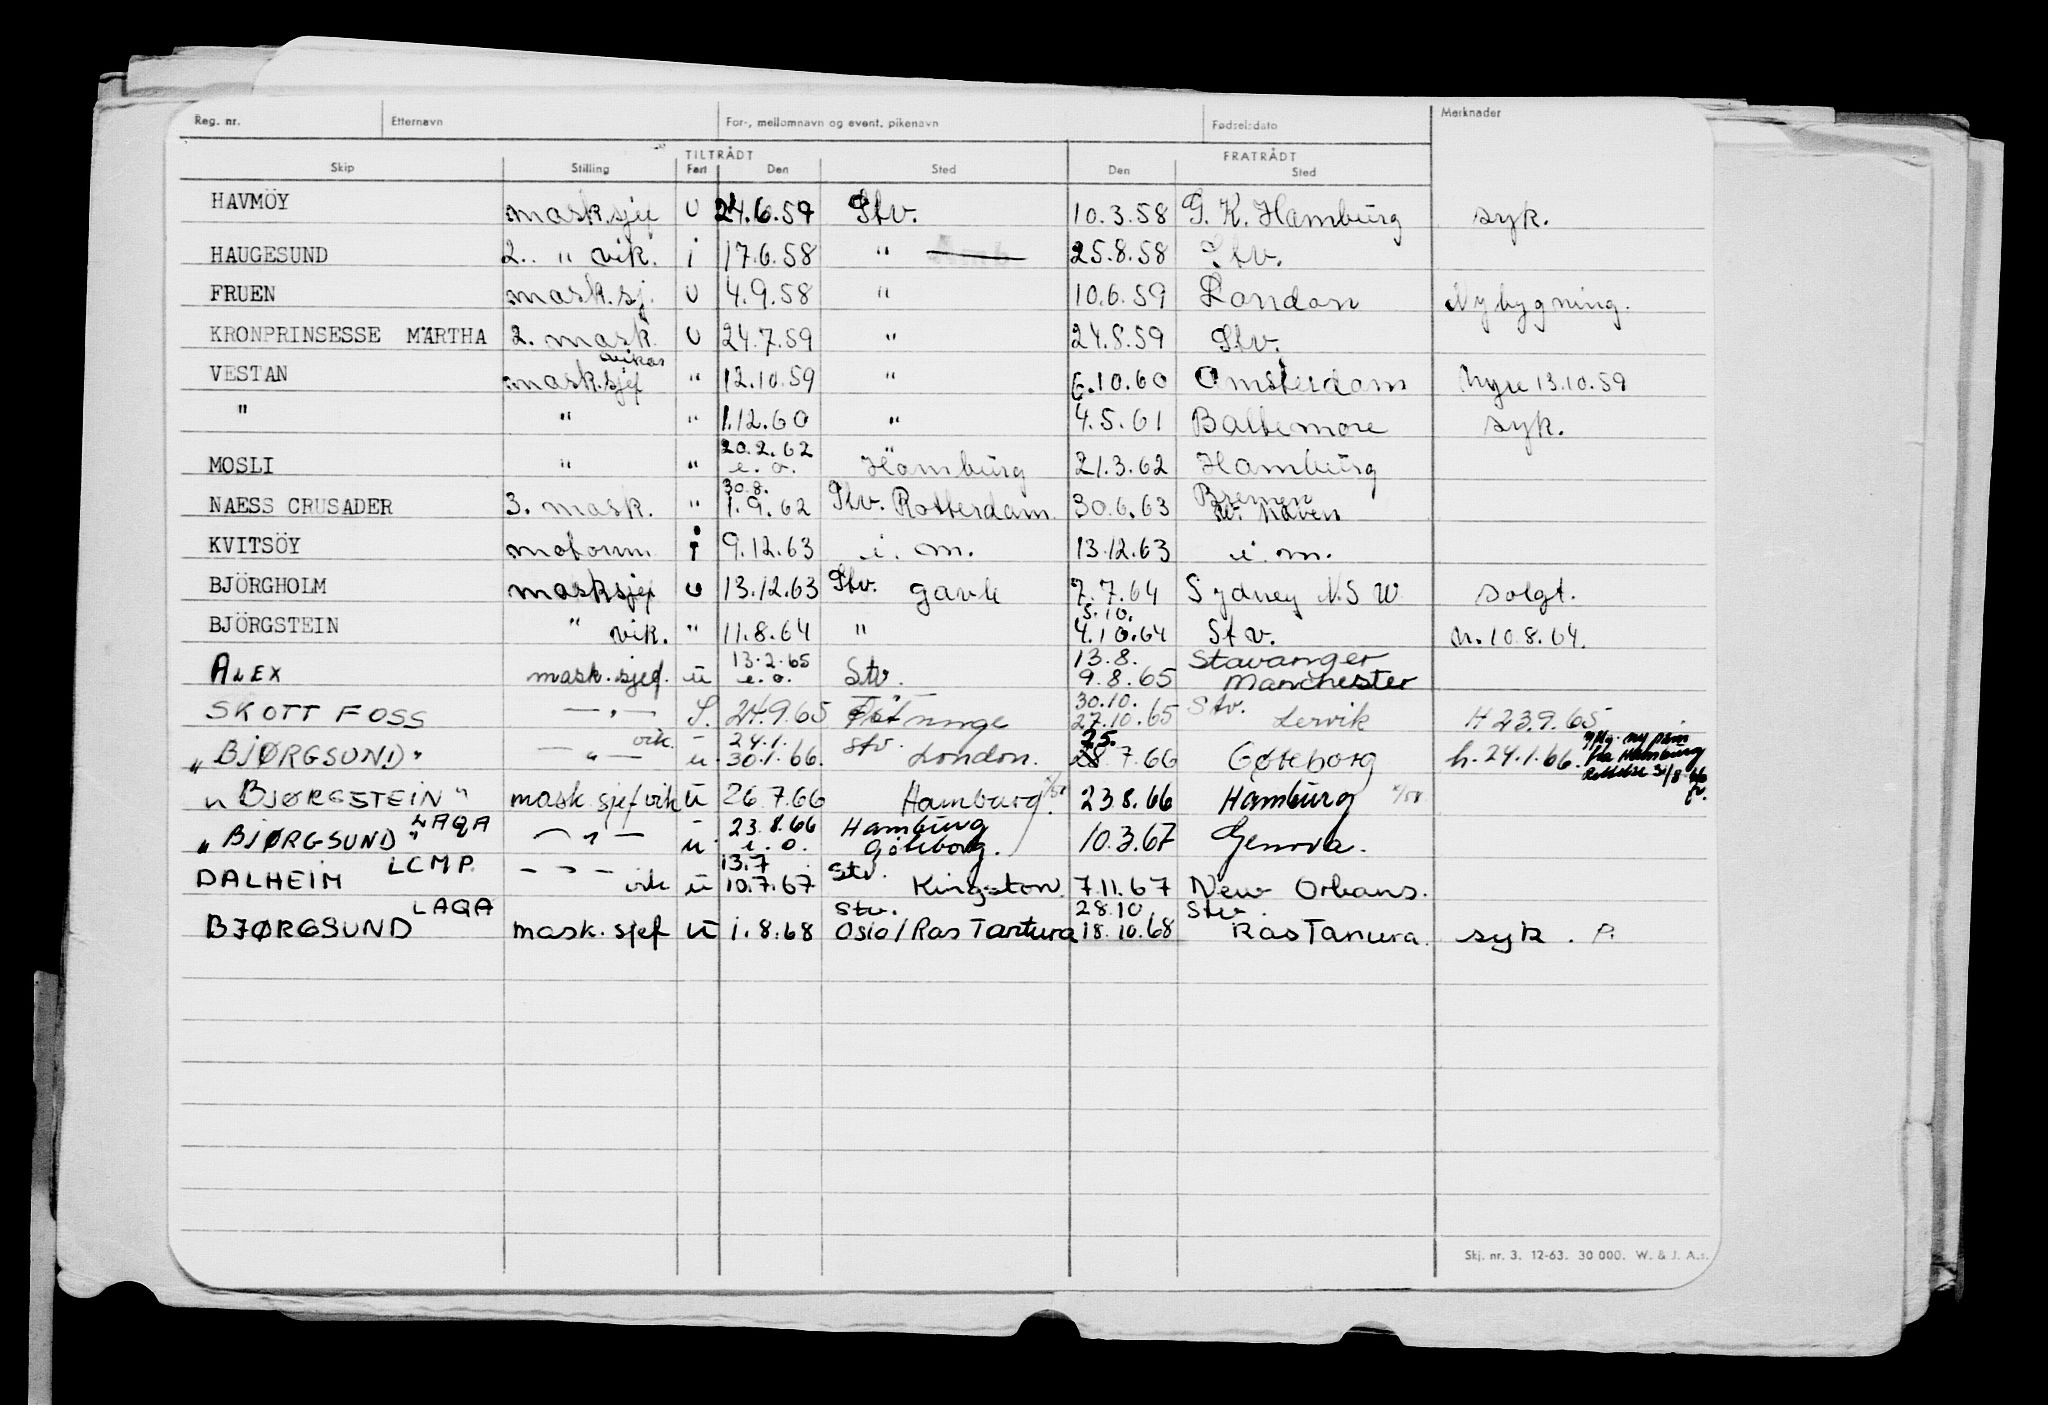 Reg. nr. Etternavn For-, mellomnavn og event. pikenavn Fødselsdato Merknader
TILTRÅDT FRATRÅDT
Skip Stilling Fart Den Sted Den Sted
HAVMÖY mask.sjef u 24.6.59 Stv. 10.3.58 G. K. Hamburg syk.
HAUGESUND 2. " vik. i 17.6.58 " 25.8.58 Stv.
FRUEN mask.sj. u 4.9.58 " 10.6.59 London Nybygning.
KRONPRINSESSE MÄRTHA 2. mask. u 24.7.59 " 24.8.59 Stv.
vikar
VESTAN mask.sjef " 12.10.59 " 6.10.60 Amsterdam Hyre 13.10.59
" " " 1.12.60 " 4.5.61 Baltemore syk.
20.2.62 "
MOSLI " " e. o. Hamburg 21.3.62 Hamburg
30.8. Bremen
NAESS CRUSADER 3. mask. " 1.9.62 Stv. Rotterdam 30.6.63 haven
KVITSÖY motorm. i 9.12.63 i. m. 13.12.63 i. m.
BJÖRGHOLM masksjef u 13.12.63 Stv. Gavle 7.7.64 Sydney N.S W solgt.
5.10.
BJÖRGSTEIN " vik. " 11.8.64 " 4.10.64 Stv. h. 10.8.64.
13.2.65 13.8. Stavanger
ALEX mask. sjef. u e.o. Stv. 9.8.65 Manchester
30.10. Stv.
SKOTT FOSS — " — S. 24.9.65 27.10.65 Lervik H 23.9.65
vik. 24.1. Stv. 25.
"BJØRGSUND" — " — u 30.1.66. London. 28.7.66 Gøteborg h. 24.1.66. fra Hamburg
"BJØRGSTEIN" mask sjef vik u 26.7.66 Hamburg 23.8.66 Hamburg
LAQA 23.8.66 Hamburg
"BJØRGSUND" — " — u e. o. Gøteborg. 10.3.67 Genova.
LCMP. 13.7 Stv.
DALHEIM — " — vik u 10.7.67 Kingston 7.11.67 New Orleans.
LAQA Stv. 28.10 Stv.
BJØRGSUND mask. sjef u 1.8.68 Oslo/Ras Tantura 18.10.68 Ras Tanura. syk. P.
Skj. nr. 3. 12-63. 30 000. W. & J. A.s.